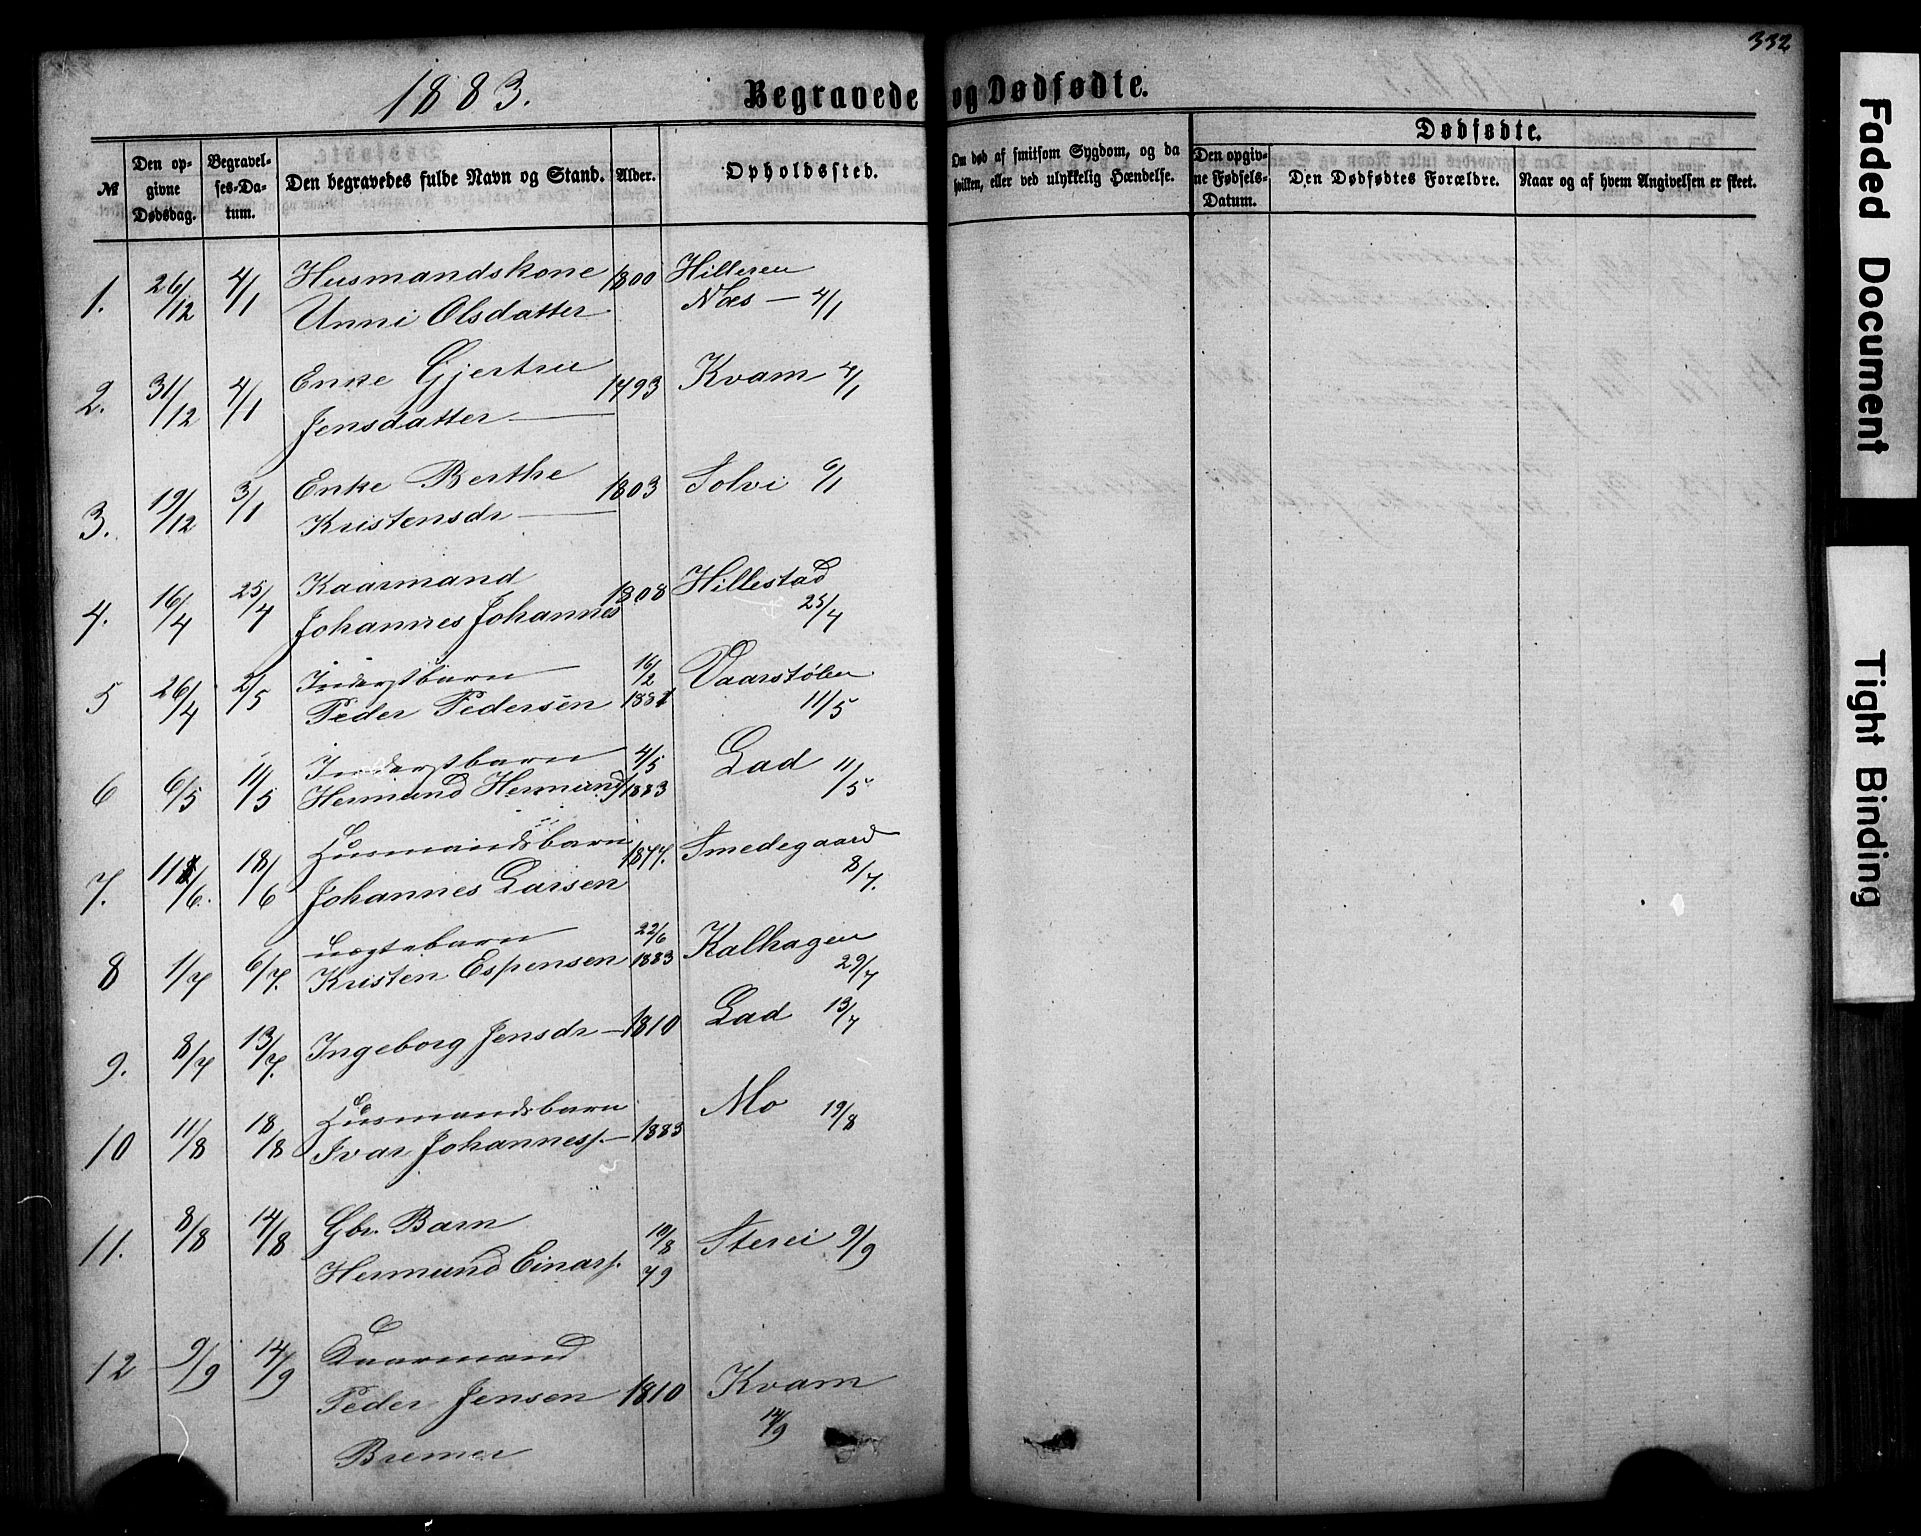 332
1883.
Begravede og Dødfødte.
№
Den opgivne Dødsdag.
Begravelses-Datum.
Den begravedes fulde Navn og Stand.
Alder.
Opholdssted.
Om død af smitsom Sygdom, og da hvilken, eller ved ulykkelig Hændelse.
Dødfødte.
Den opgivne Fødsels-Datum.
Den Dødfødtes Forældre.
Naar og af hvem Angivelsen er skeet.
1. 26/12 4/1 Husmandskone 1800 Hilleren
Unni Olsdatter Næs — 4/1
2. 31/12 4/1 Enke Gjertru 1793 Kvam 4/1
Jensdatter —
3. 19/12 3/1 Enke Berthe 1803 Solvi 6/1
Kristensdr —
4. 16/4 25/4 Kaarmand 1808 Hillestad
Johannes Johannes 25/4
5 26/4 2/5 Inderstbarn 16/2 Vaarstølen
Peder Pedersen 1881 11/5
6 6/5 11/5 Inderstbarn 4/5 Lad 11/5
Hermund Hermunds 1883
7. /6. 18/6 Husmandsbarn 1877. Smedegaard
Johannes Larsen 8/7.
8 1/7 6/7. Lægtebarn 22/6 Kalhagen
Kristen Espensen 1883 29/7
9. 8/7 13/7. Ingeborg Jensdr — 1810 Lad 13/7
10 11/8 18/8 Husmandsbarn Mo 19/8
Ivar Johanness. — 1883
11. 8/8 14/8 Gbr. Barn 19/8 Sterei 9/9
Hermund Einars. 79
12 9/9 14/9 Kaarmand
Peder Jensen 1810 Kvam
Bremer 14/9
Faded Document
Tight Binding